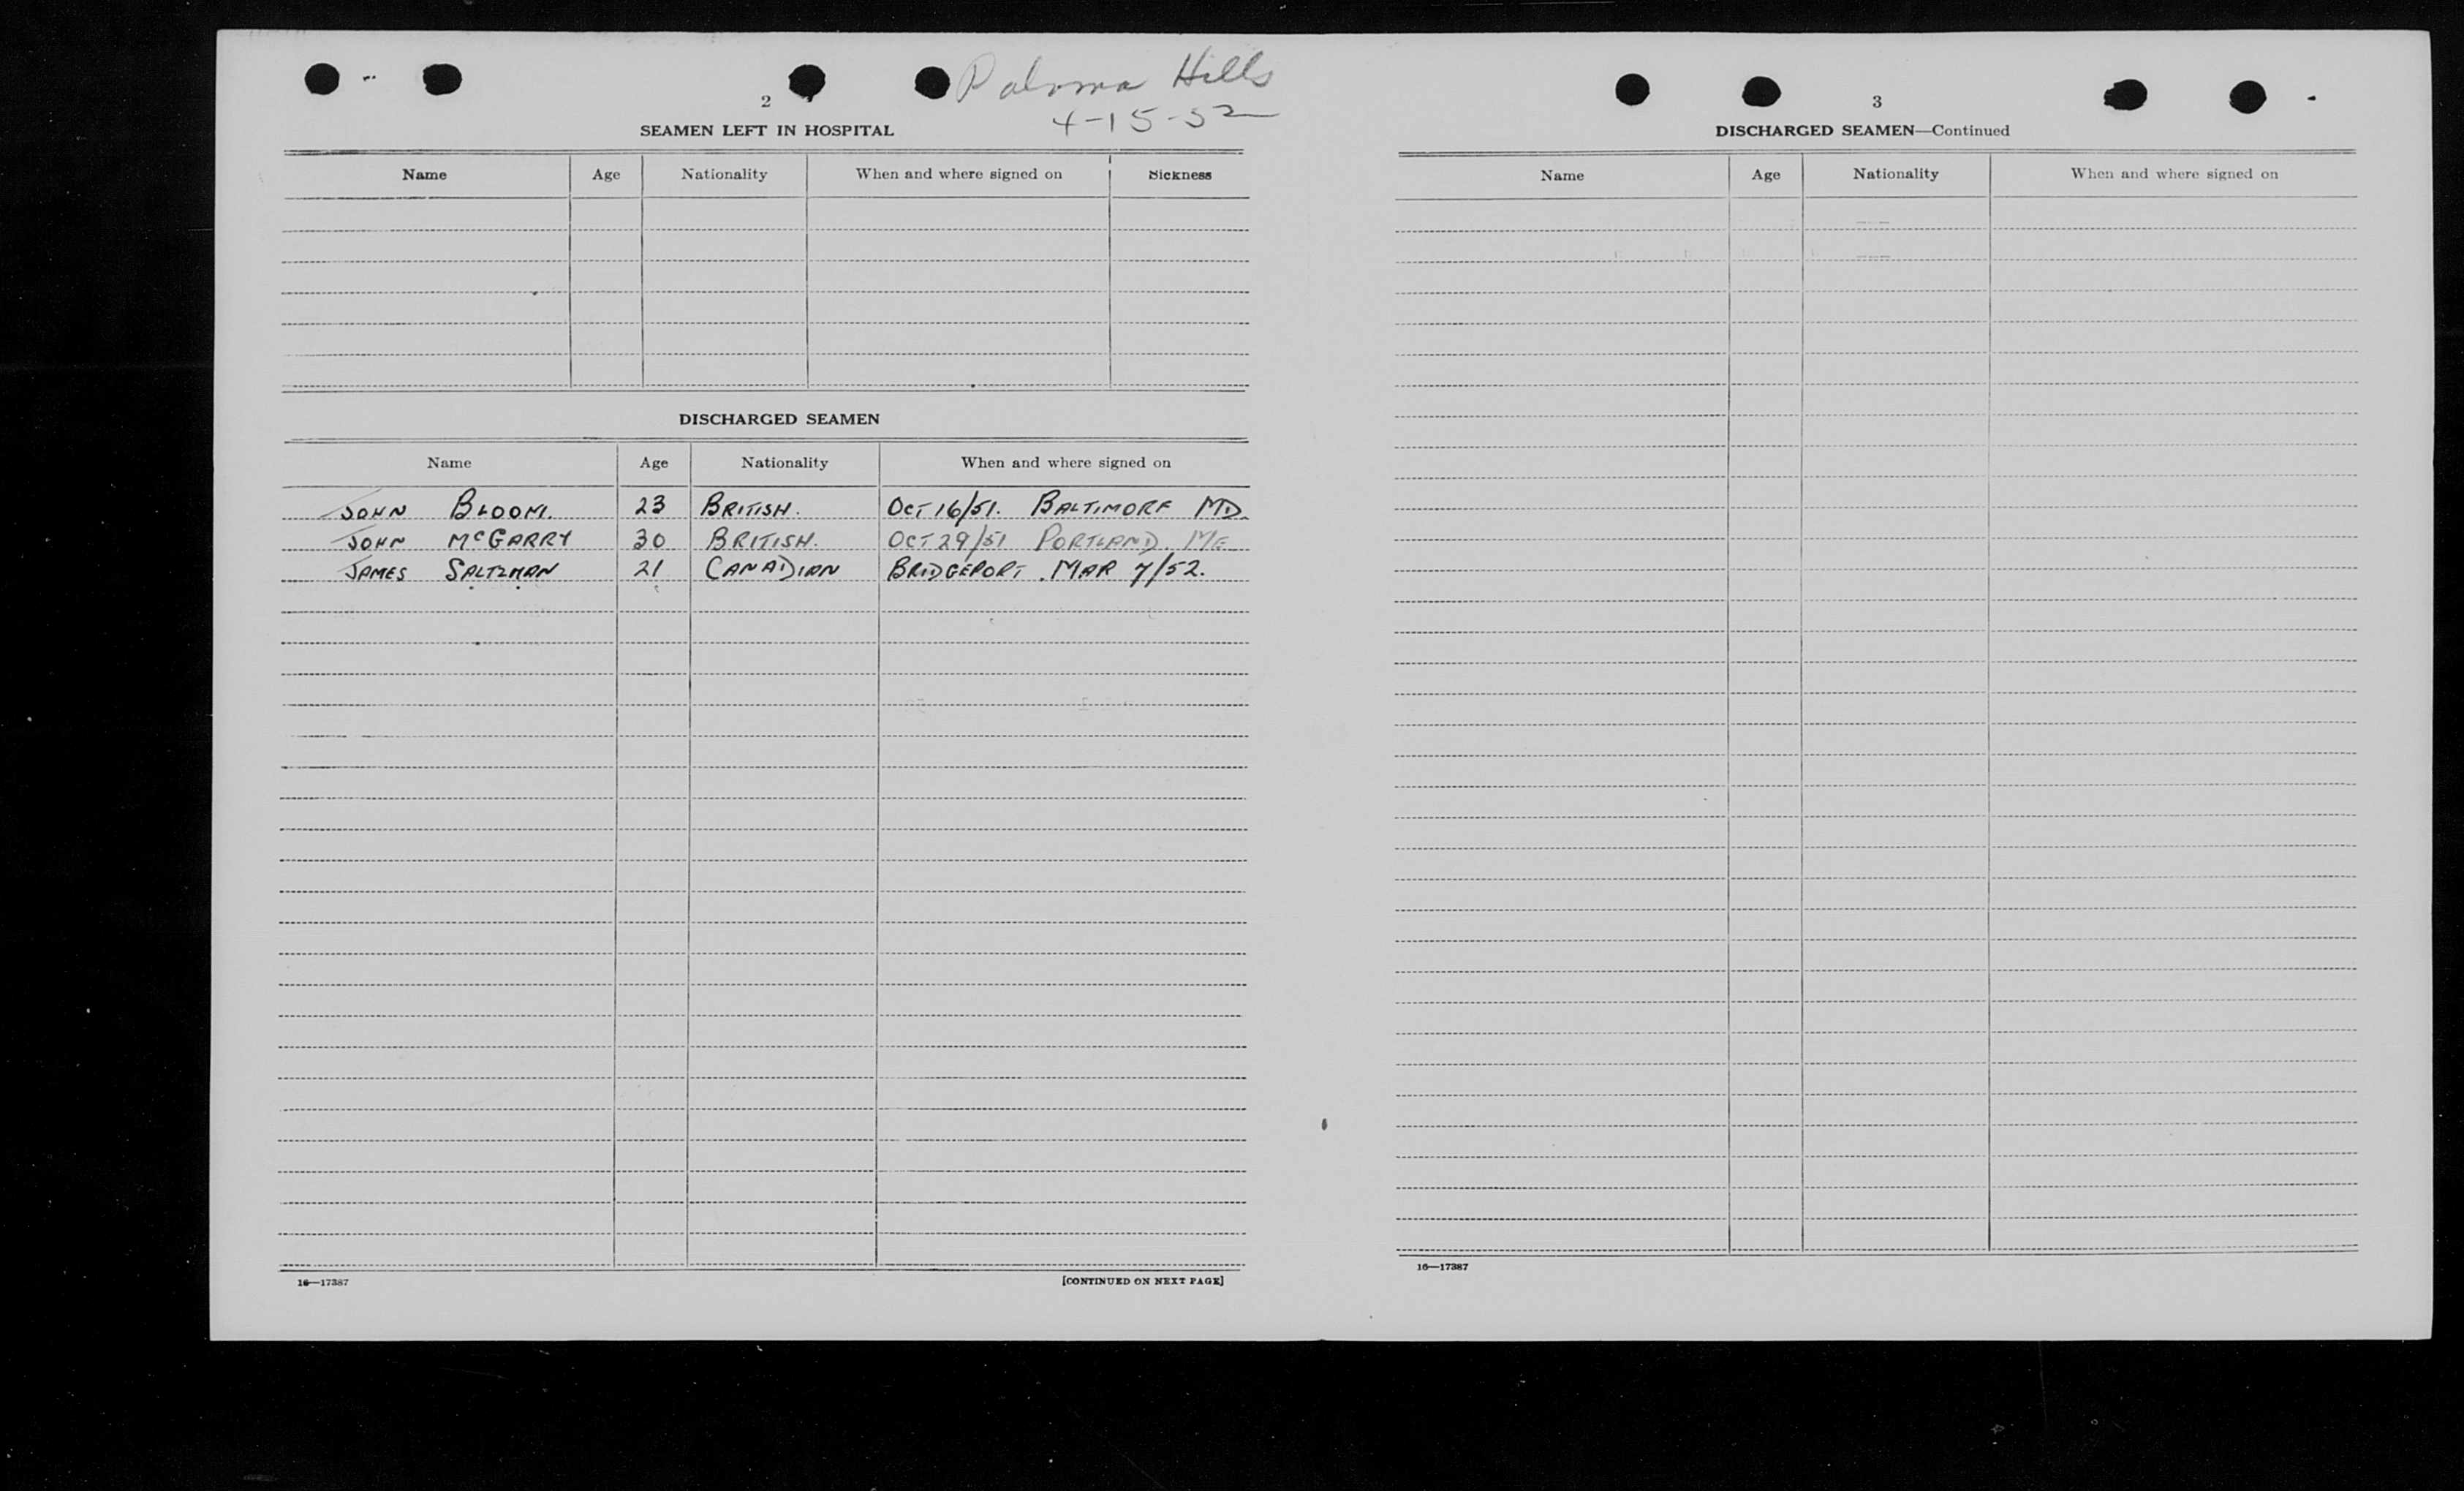 Paloma Hills
4-15-52
2
SEAMEN LEFT IN HOSPITAL
Name Age Nationality When and where signed on Sickness
DISCHARGED SEAMEN
Name Age Nationality When and where signed on
JOHN BLOOM. 23 BRITISH. OCT 16/51. BALTIMORE MD.
JOHN McGARRY 30 BRITISH. OCT 29/51 PORTLAND. ME
JAMES SALTZMAN 21 CANADIAN BRIDGEPORT. MAR 7/52.
16—17387 [CONTINUED ON NEXT PAGE]
3
DISCHARGED SEAMEN—Continued
Name Age Nationality When and where signed on
16—17387